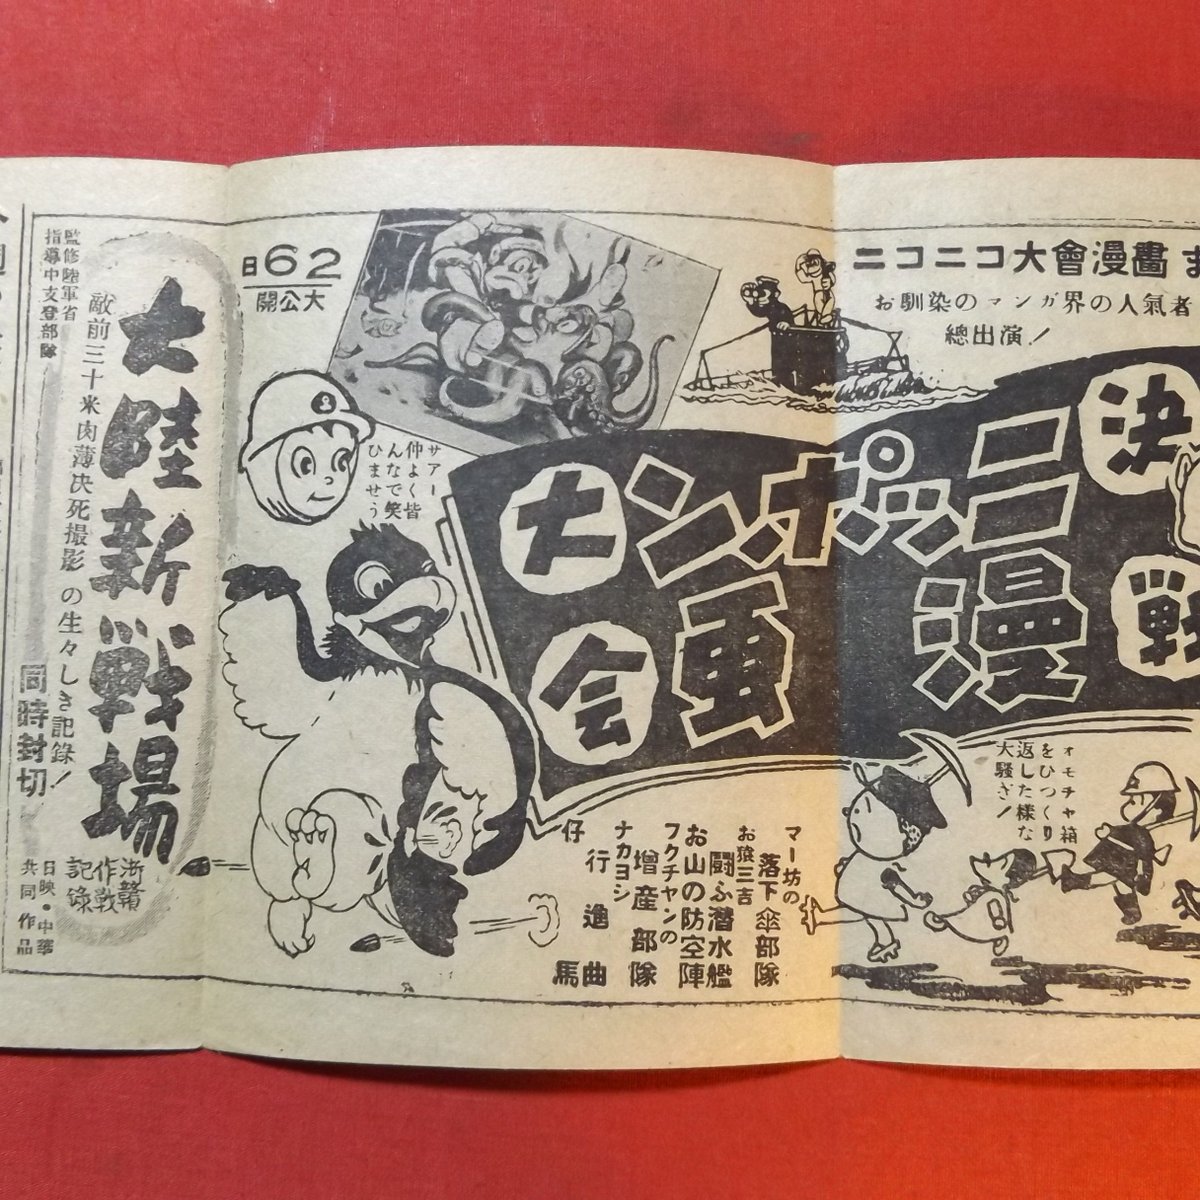 ニコニコ大會漫畫
お馴染のマンガ界の人氣者
總出演！
決戦
ニッポン
漫画
大会
26日
大公開
サアー
仲よく皆
んなで笑
ひませう
オモチャ箱
をひつくり
返した様な
大騒ぎ！
マー坊の
落下傘部隊
お猿三吉
闘ふ潜水艦
お山の防空陣
フクチャンの
増産部隊
ナカヨシ
行進曲
仔馬
監修陸軍省
指導中支登部隊
敵前三十米肉薄決死撮影の生々しき記録！
大陸新戦場
浙贛
作戦
記録
日映・中華
共同作品
同時封切